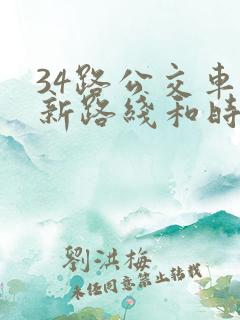 34路公交车
新路线和时
劉洪梅
未经同意禁止转载